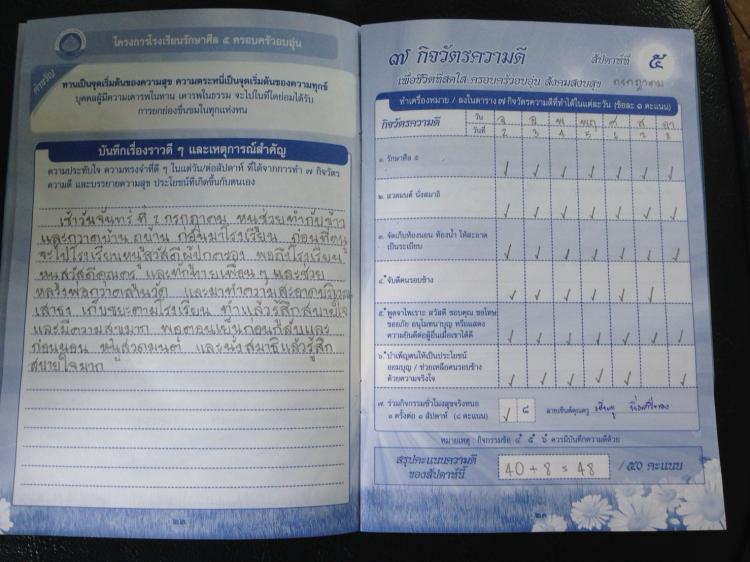 โครงการโรงเรียนรักษาศีล ๕ ครอบครัวอบอุ่น
คำขวัญ
ทานเป็นจุดเริ่มต้นของความสุข ความตระหนี่เป็นจุดเริ่มต้นของความทุกข์
บุคคลผู้มีความเคารพในทาน เคารพในธรรม จะไปในที่ใดย่อมได้รับ
การยกย่องชื่นชมในทุกแห่งหน
บันทึกเรื่องราวดี ๆ และเหตุการณ์สำคัญ
ความประทับใจ ความทรงจำที่ดี ๆ ในแต่วัน/ต่อสัปดาห์ ที่ได้จากการทำ ๗ กิจวัตร
ความดี และบรรยายความสุข ประโยชน์ที่เกิดขึ้นกับตนเอง
เช้าวันจันทร์ ที่ 2 กรกฎาคม หนูช่วยทำกับข้าว
และกวาดบ้าน ถูบ้าน ก่อนมาโรงเรียน ก่อนที่หนู
จะไปโรงเรียนหนูสวัสดีผู้ปกครอง พอถึงโรงเรียน
หนูสวัสดีคุณครู และทักทายเพื่อน ๆ และช่วย
และมาทำความสะอาดบริเวณ
เสาธง เก็บขยะตามโรงเรียน ทำแล้วรู้สึกสบายใจ
และมีความสุขมาก พอตอนเย็นก่อนกลับและ
ก่อนนอน หนูสวดมนต์ และนั่งสมาธิแล้วรู้สึก
สบายใจมาก
๒๒
๗ กิจวัตรความดี
สัปดาห์ที่ ๕
เพื่อชีวิตที่สดใส ครอบครัวอบอุ่น สังคมสงบสุข กรกฎาคม
ทำเครื่องหมาย / ลงในตาราง ๗ กิจวัตรความดีที่ทำได้ในแต่ละวัน (ข้อละ ๑ คะแนน)
กิจวัตรความดี วัน จ อ พ พฤ ศ ส อา
วันที่ 2 3 4 5 6 7 8
๑. รักษาศีล ๕
๒. สวดมนต์ นั่งสมาธิ
๓. จัดเก็บห้องนอน ห้องน้ำ ให้สะอาด
เป็นระเบียบ
๔. จับดีคนรอบข้าง
๕. พูดจาไพเราะ สวัสดี ขอบคุณ ขอโทษ
ขออภัย อนุโมทนาบุญ หรือแสดง
ความยินดีต่อผู้อื่นเมื่อเขาได้ดี
๖. บำเพ็ญตนให้เป็นประโยชน์
ออมบุญ / ช่วยเหลือคนรอบข้าง
ด้วยความจริงใจ
๗. ร่วมกิจกรรมชั่วโมงสุขจริงหนอ
๑ ครั้งต่อ ๑ สัปดาห์ (๘ คะแนน) ๘ ลายเซ็นต์คุณครู
หมายเหตุ : กิจกรรมข้อ ๔ ๕ ๖ ควรมีบันทึกความดีด้วย
สรุปคะแนนความดี
ของสัปดาห์นี้ 40 + 8 = 48 / ๕๐ คะแนน
๒๓